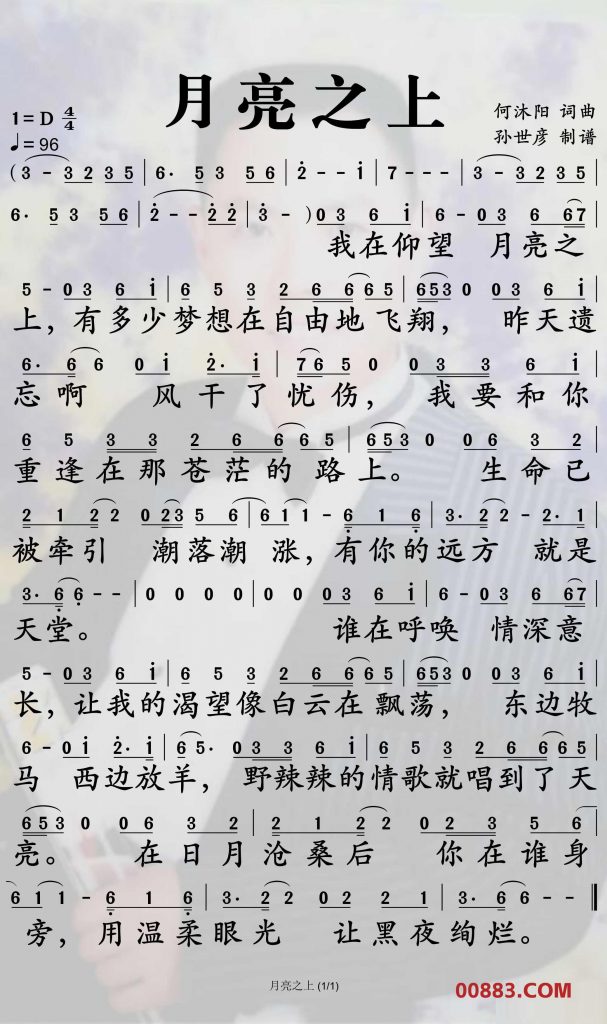 月亮之上
1=D 4/4
♩=96
何沐阳 词曲
孙世彦 制谱
(3 - 3 2 3 5 | 6· 5 3 5 6 | 2̇ - - 1̇ | 7 - - - | 3 - 3 2 3 5 |
6· 5 3 5 6 | 2̇ - - 2̇ 2̇ | 3̇ - ) 0 3 6 1̇ | 6 - 0 3 6 6 7 |
我在仰望 月亮之
5 - 0 3 6 1̇ | 6 5 3 2 6 6 6 5 | 6 5 3 0 0 3 6 1̇ |
上，有多少梦想在自由地飞翔， 昨天遗
6· 6 6 0 1̇ 2̇· 1̇ | 7 6 5 0 0 3 3 6 1̇ |
忘啊 风干了忧伤， 我要和你
6 5 3 3 2 6 6 6 5 | 6 5 3 0 0 6 3 2 |
重逢在那苍茫的路上。 生命已
2 1 2 2 0 2 3 5 6 | 6 1 1 - 6̣ 1 6̣ | 3· 2 2 - 2· 1 |
被牵引 潮落潮 涨，有你的远方 就是
3· 6̣ 6̣ - - | 0 0 0 0 | 0 0 0 3 6 1̇ | 6 - 0 3 6 6 7 |
天堂。 谁在呼唤 情深意
5 - 0 3 6 1̇ | 6 5 3 2 6 6 6 5 | 6 5 3 0 0 3 6 1̇ |
长，让我的渴望像白云在飘荡， 东边牧
6 - 0 1̇ 2̇· 1̇ | 6 5· 0 3 3 6 1̇ | 6 5 3 2 6 6 6 5 |
马 西边放羊，野辣辣的情歌就唱到了天
6 5 3 0 0 6 3 2 | 2 1 2 2 0 2 3 5 6 |
亮。 在日月沧桑后 你在谁身
6 1 1 - 6̣ 1 6̣ | 3· 2 2 0 2 2 1 | 3 - - - ‖
旁，用温柔眼光 让黑夜绚烂。
月亮之上 (1/1)
00883.COM